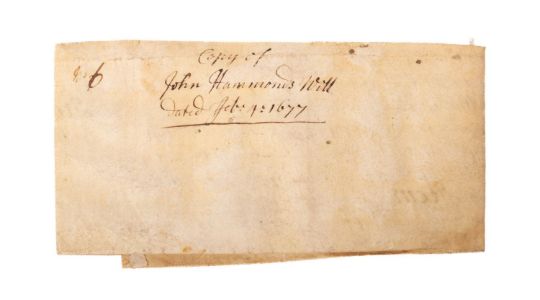 Copy of
No 6
John Hammonds Will
Dated Feb: 4: 1677